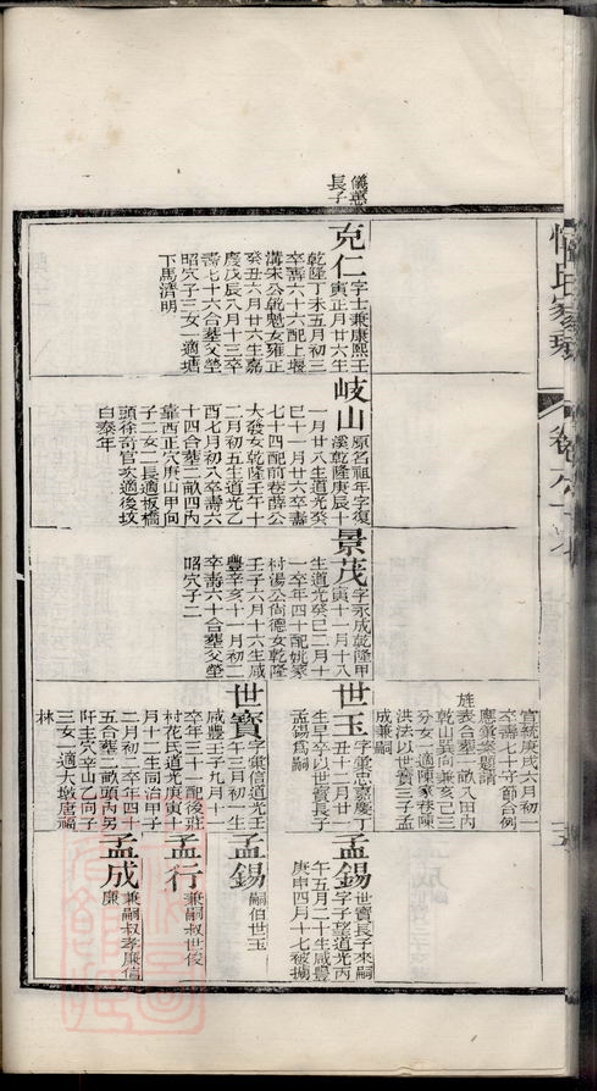 儀惪
長子
克仁
字士兼康熙壬
寅正月廿六生
乾隆丁未五月初三
卒壽六十六配上堰
溝朱公乾魁女雍正
癸丑六月廿六生嘉
慶戊辰八月十三卒
壽七十六合墓父塋
昭穴子三女一適塘
下馬清明
岐山
原名祖年字復
溪乾隆庚辰十
一月廿八生道光癸
巳十一月廿六卒壽
七十四配前巷薛公
大發女乾隆壬午十
二月初五生道光乙
酉七月初八卒壽六
十四合墓二畝四內
靠西正穴庚山甲向
子二女二長適板橋
頭徐奇官次適後坟
白泰年
景茂
字永成乾隆甲
寅十一月十八
生道光癸巳二月十
一卒年四十配姚家
村湯公尙德女乾隆
壬子六月十六生咸
豐辛亥十一月初二
卒壽六十合墓父塋
昭穴子二
宣統庚戌六月初一
卒壽七十守節合例
應彙案題請
旌表合墓一畝八田內
乾山巽向兼亥己三
分女一適陳家巷陳
洪法以世寶三子孟
成兼嗣
世玉
字彙忠嘉慶丁
丑十二月廿
生早卒以世寶長子
孟錫爲嗣
世寶
字彙信道光壬
午三月初一生
咸豐壬子九月十一
卒年三十一配後莊
村花氏道光庚寅十
月十二生同治甲子
二月初二卒年四十
五合墓二畝頭內另
阡主穴辛山乙向子
三女一適大墩唐福
林
孟錫
世寶長子來嗣
字子望道光丙
午五月二十生咸豐
庚申四月十七被擄
孟錫
嗣伯世玉
孟行
兼嗣叔世俊
孟成
兼嗣叔孝廉信
廉